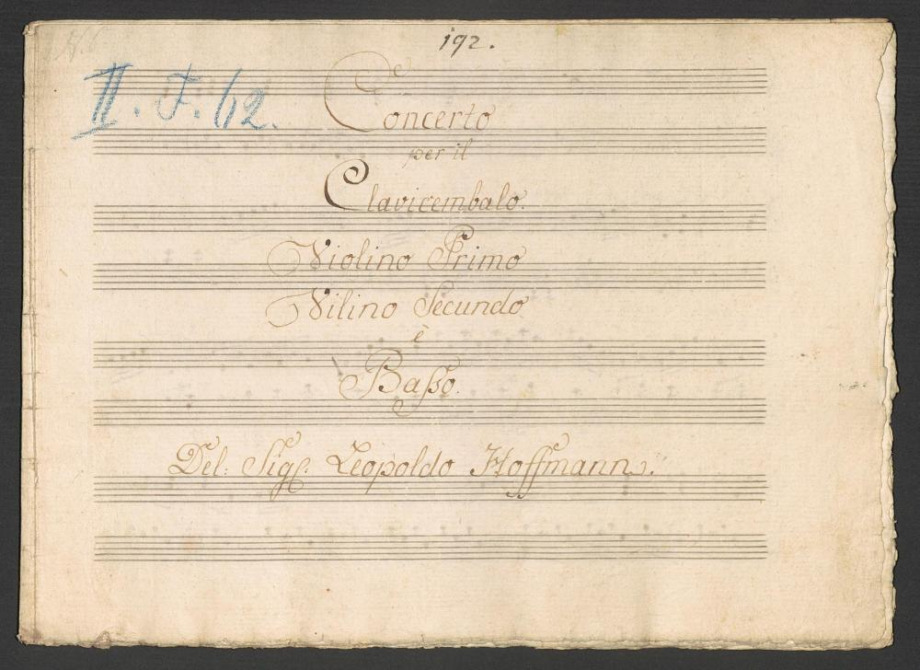 192.
II. F. 62.
Concerto
per il
Clavicembalo.
Violino Primo
Vilino Secundo
è
Baſso.
Del: Sigſ: Leopoldo Hoffmann.